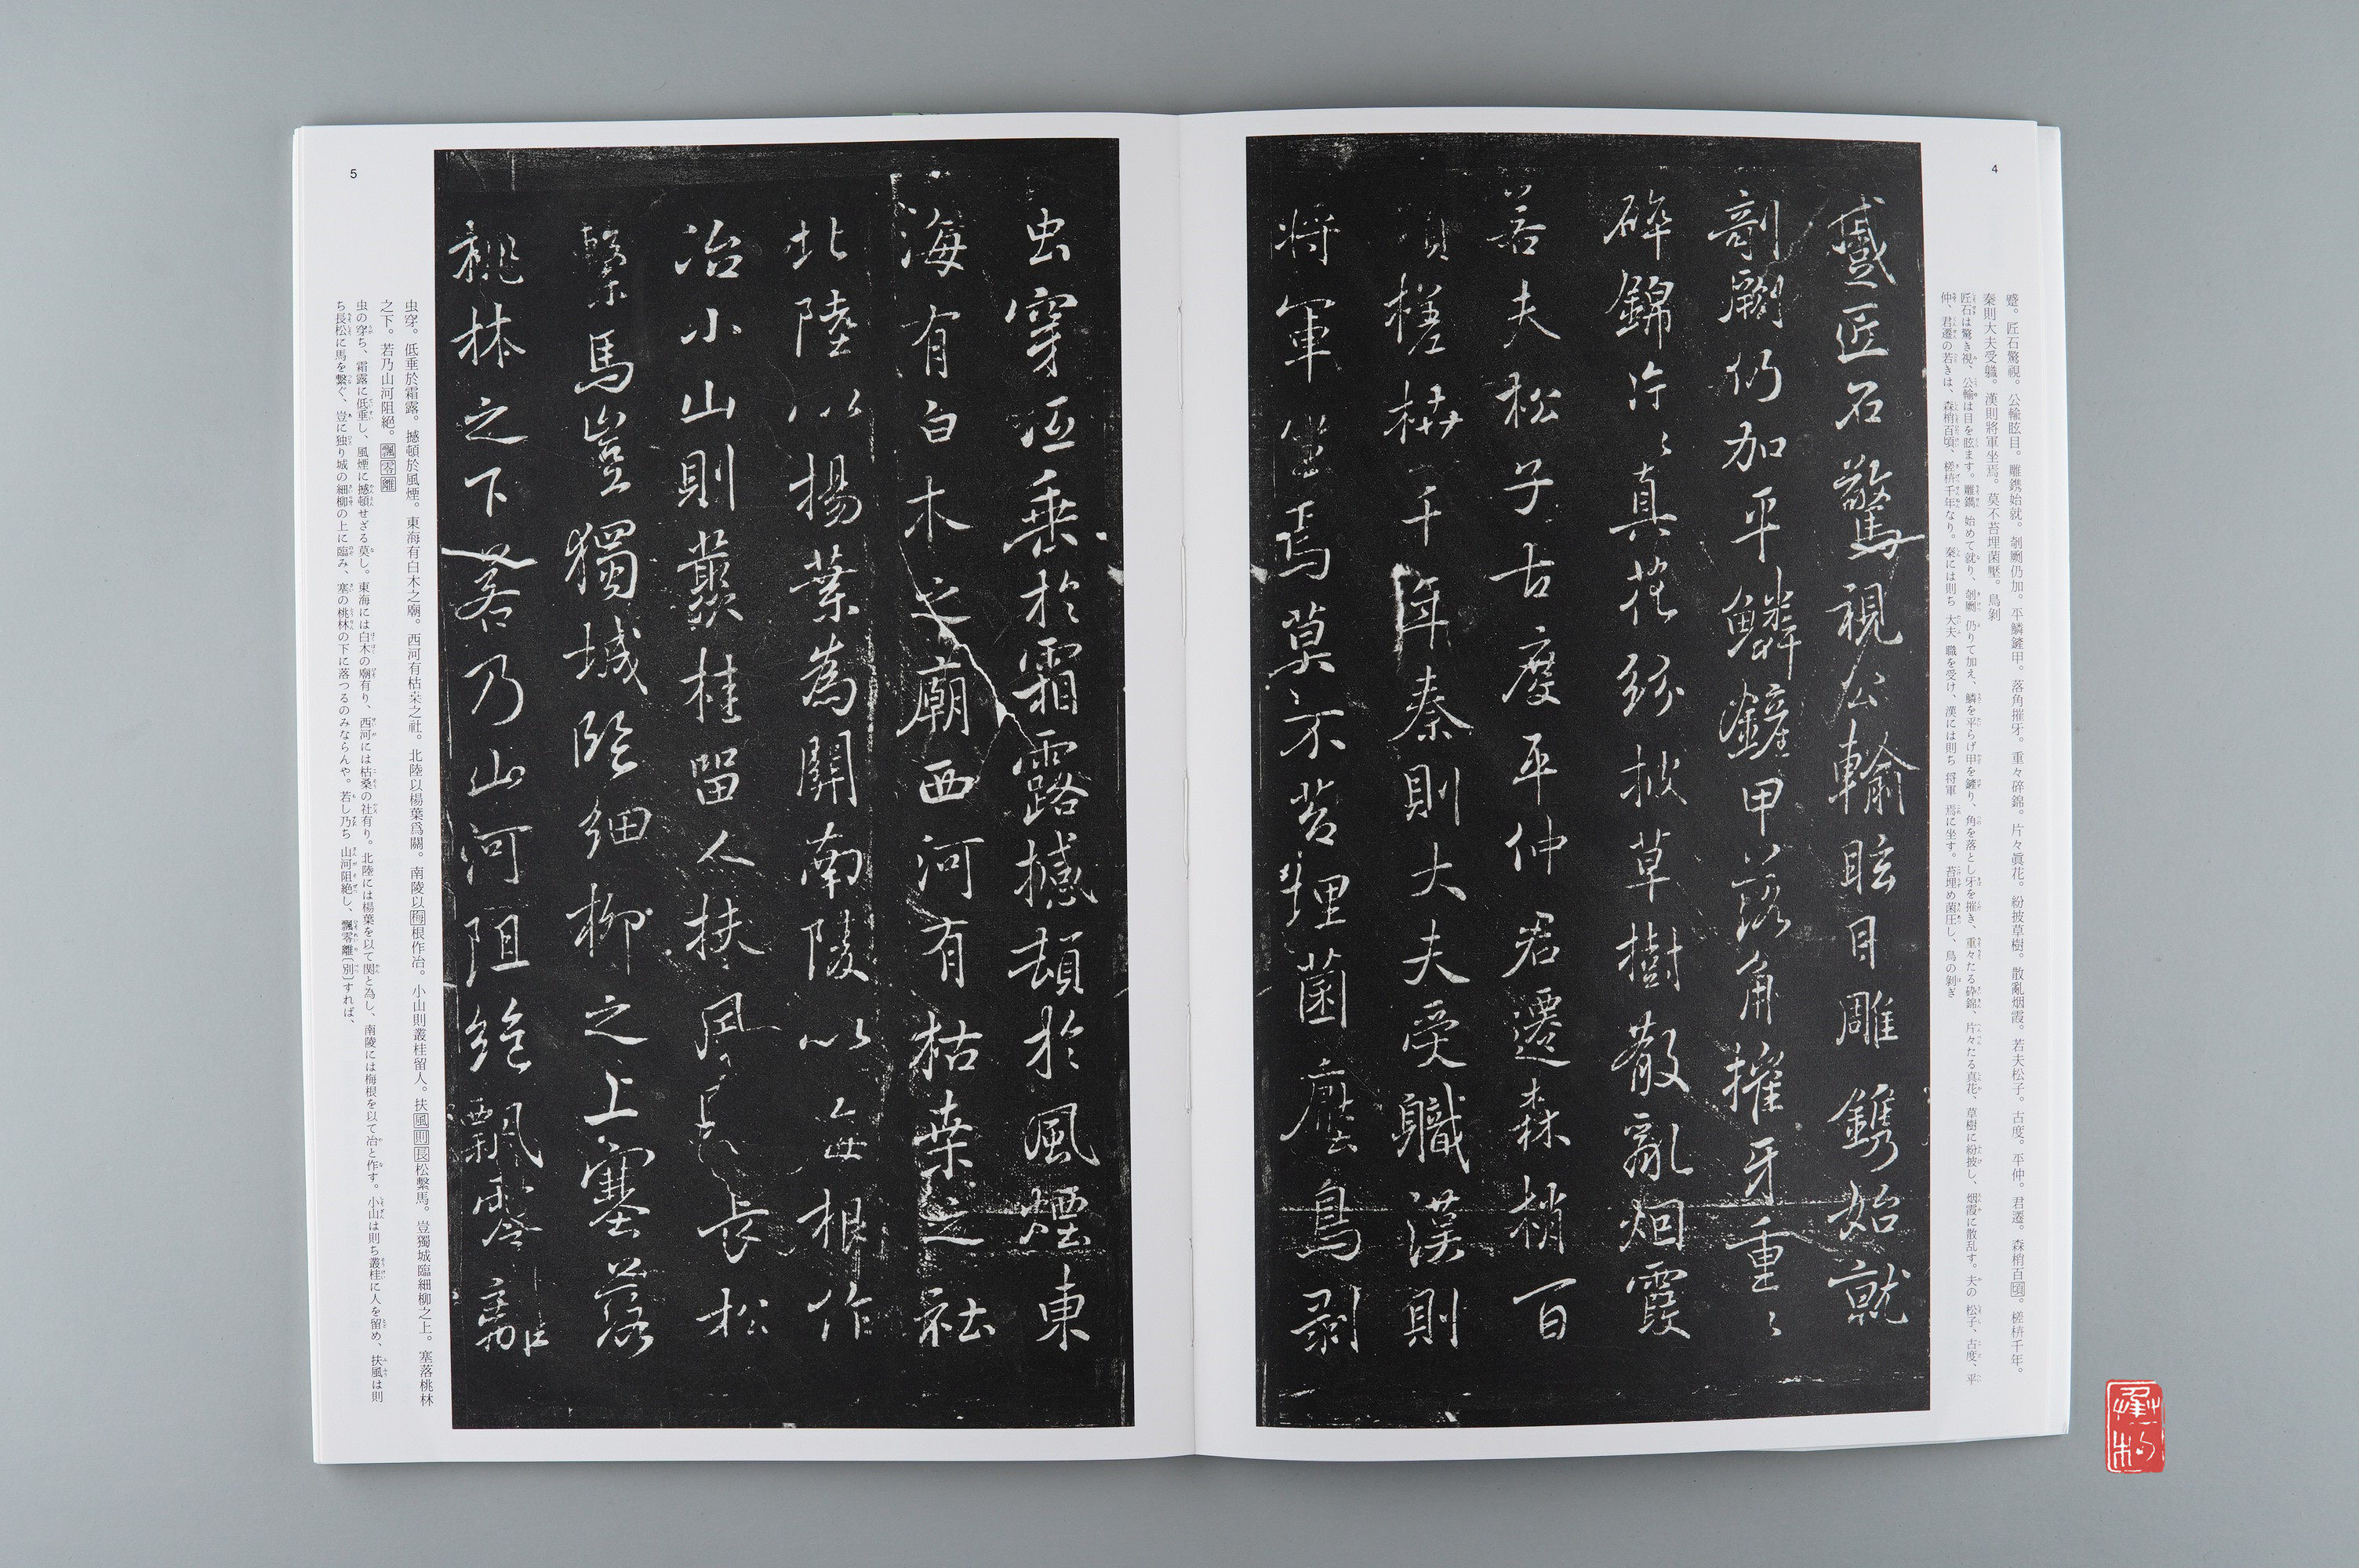 4
蹙。匠石驚視。公輸眩目。雕鐫始就。剞劂仍加。平鱗鏟甲。落角摧牙。重々碎錦。片々眞花。紛披草樹。散亂烟霞。若夫松子。古度。平仲。君遷。森梢百頃。槎枿千年。
秦則大夫受職。漢則將軍坐焉。莫不苔埋菌壓。鳥剝
匠石は驚き視、公輸は目を眩ます。雕鐫 始めて就り、剞劂 仍りて加え、鱗を平らげ甲を鏟り、角を落とし牙を摧き、重々たる碎錦、片々たる真花、草樹に紛披し、烟霞に散乱す。夫の 松子、古度、平
仲、君遷の若きは、森梢百頃、槎枿千年なり。秦には則ち 大夫 職を受け、漢には則ち 将軍 焉に坐す。苔埋め菌圧し、鳥の剝ぎ
蹙匠石驚視公輸眩目雕鐫始就
剞劂仍加平鱗鏟甲落角摧牙重〻
碎錦片〻真花紛披草樹散亂烟霞
若夫松子古度平仲君遷森梢百
頃槎枿千年秦則大夫受職漢則
將軍坐焉莫不苔埋菌壓鳥剥
虫穿低垂於霜露撼頓於風煙東
海有白木之廟西河有枯桒之社
北陸以楊葉為關南陵以每根作
冶小山則叢桂留人扶風長松
繫馬豈獨城臨細柳之上塞落
桃林之下若乃山河阻絕飄零離
虫穿。低垂於霜露。撼頓於風煙。東海有白木之廟。西河有枯桒之社。北陸以楊葉爲關。南陵以梅根作冶。小山則叢桂留人。扶風則長松繫馬。豈獨城臨細柳之上。塞落桃林
之下。若乃山河阻絕。飄零離
虫の穿ち、霜露に低垂し、風煙に撼頓せざる莫し。東海には白木の廟有り、西河には枯桑の社有り。北陸には楊葉を以て関と為し、南陵には梅根を以て冶と作す。小山は則ち叢桂に人を留め、扶風は則
ち長松に馬を繫ぐ、豈に独り城の細柳の上に臨み、塞の桃林の下に落つるのみならんや。若し乃ち 山河阻絶し、飄零離〔別〕すれば、
5